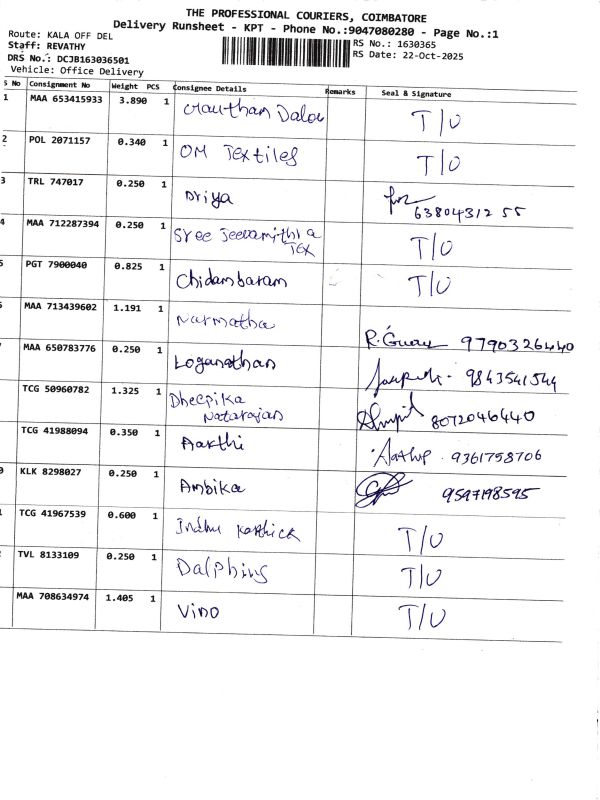 THE PROFESSIONAL COURIERS, COIMBATORE
Delivery Runsheet - KPT - Phone No.:9047080280 - Page No.:1
Route: KALA OFF DEL
Staff: REVATHY
DRS No.: DCJB163036501
Vehicle: Office Delivery
RS No.: 1630365
RS Date: 22-Oct-2025
S No Consignment No Weight PCS Consignee Details Remarks Seal & Signature
1 MAA 653415933 3.890 1 T/O
2 POL 2071157 0.340 1 OM Textiles T/O
3 TRL 747017 0.250 1 Driya 6380431255
4 MAA 712287394 0.250 1 Sree Jeevamithra T/O
Tex
5 PGT 7900040 0.825 1 Chidambaram T/O
MAA 713439602 1.191 1 Narmatha 9790326440
MAA 650783776 0.250 1 Loganathan 9843541544
TCG 50960782 1.325 1 Dheepika
Natarajan 8072046440
TCG 41988094 0.350 1 Aarthi 9361758706
0 KLK 8298027 0.250 1 Ambika 9597198595
1 TCG 41967539 0.600 1 Indhu Karthick T/O
2 TVL 8133109 0.250 1 Dalphins T/O
MAA 708634974 1.405 1 Vino T/O